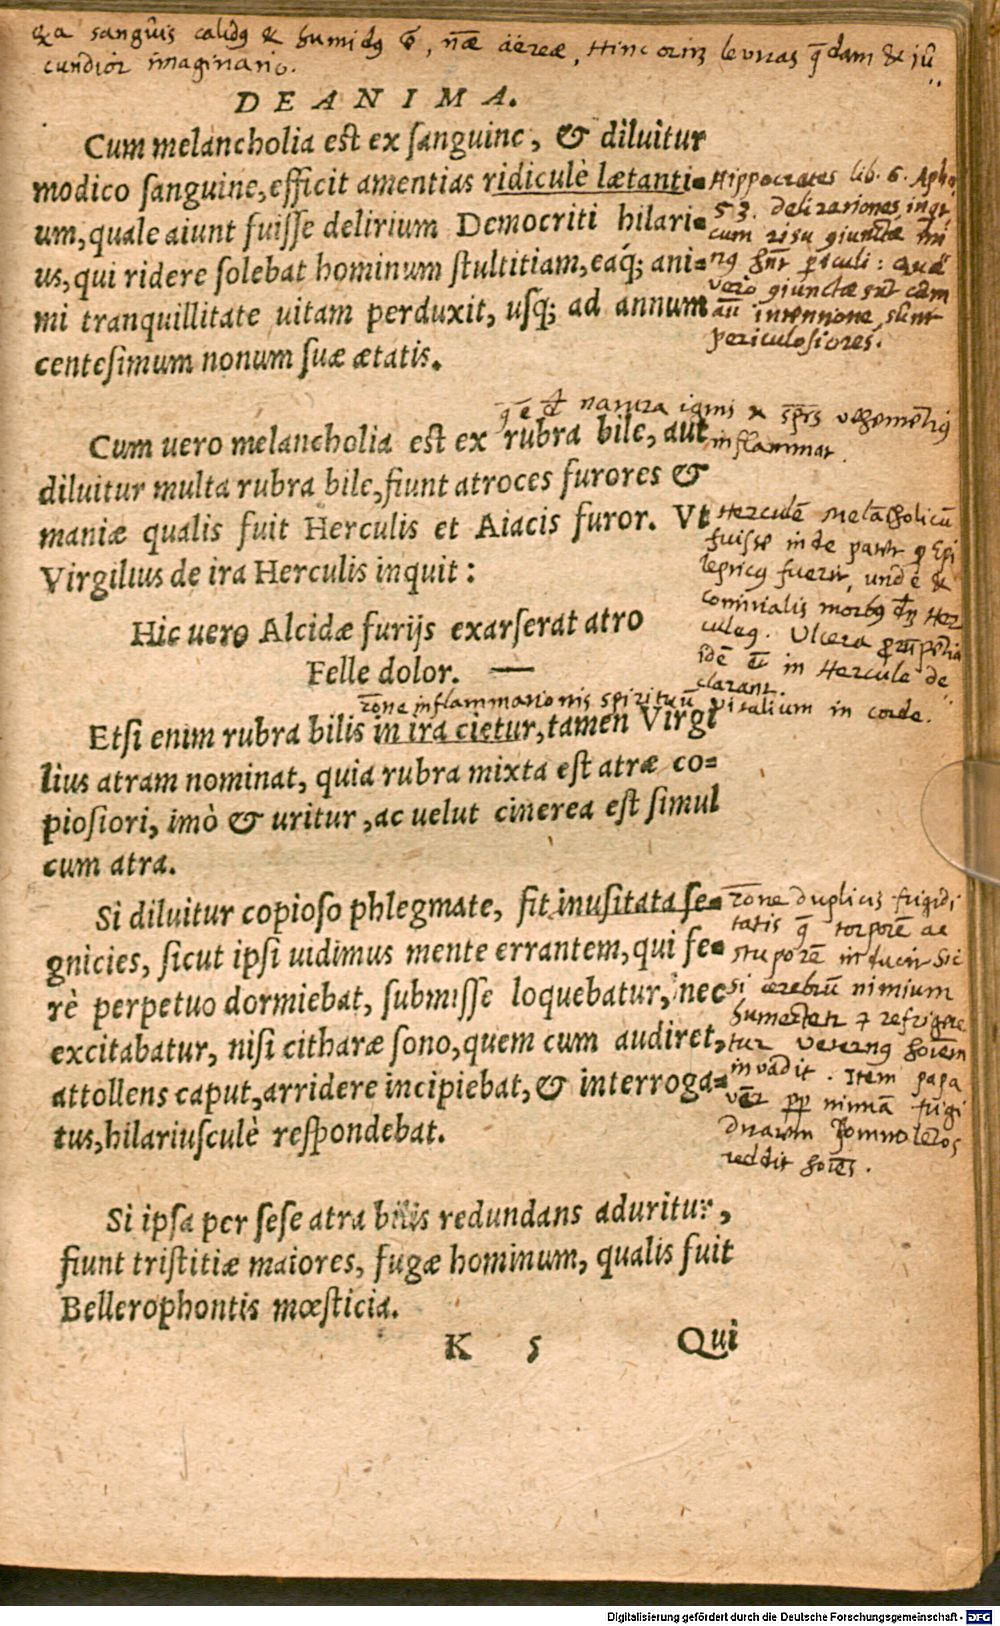 sanguis calidq & humidq
cundior imaginatio.
DE ANIMA.
Cum melancholia est ex sanguine, & diluitur
modico sanguine, efficit amentias ridiculè lætanti=
um, quale aiunt fuisse delirium Democriti hilari=
us, qui ridere solebat hominum stultitiam, eaq́; ani=
mi tranquillitate uitam perduxit, usq; ad annum
centesimum nonum suæ ætatis.
Hippocrates lib. 6. Apho
53. delirationes
cum risu
periculosiores.
natura ignis
inflammat.
Cum uero melancholia est ex rubra bile, aut
diluitur multa rubra bile, fiunt atroces furores &
maniæ qualis fuit Herculis et Aiacis furor. Vt
Virgilius de ira Herculis inquit:
Hic uero Alcidæ furijs exarserat atro
Felle dolor. —
Herculē melācholicū
fuisse inde patet
lepticq fuerit, unde &
comitialis morbq
culeq. Ulcera
idē in Hercule de
clarant.
rōne inflammationis spirituū vitalium in corde.
Etsi enim rubra bilis in ira cietur, tamen Virgi
lius atram nominat, quia rubra mixta est atræ co=
piosiori, imò & uritur, ac uelut cinerea est simul
cum atra.
Si diluitur copioso phlegmate, fit inusitata se=
gnicies, sicut ipsi uidimus mente errantem, qui fe=
rè perpetuo dormiebat, submisse loquebatur, nec
excitabatur, nisi citharæ sono, quem cum audiret,
attollens caput, arridere incipiebat, & interroga=
tus, hilariusculè respondebat.
rōne duplicis frigidi
tatis torporē ac
stuporē inducit sic
si cerebrū nimium
humectetur & refrigere
tur veternq hoīem
invadit. Item papa
ver nimiā frigi
reddit hoīes.
Si ipsa per sese atra bilis redundans aduritur,
fiunt tristitiæ maiores, fugæ hominum, qualis fuit
Bellerophontis mœsticia.
K 5 Qui
Digitalisierung gefördert durch die Deutsche Forschungsgemeinschaft - DFG